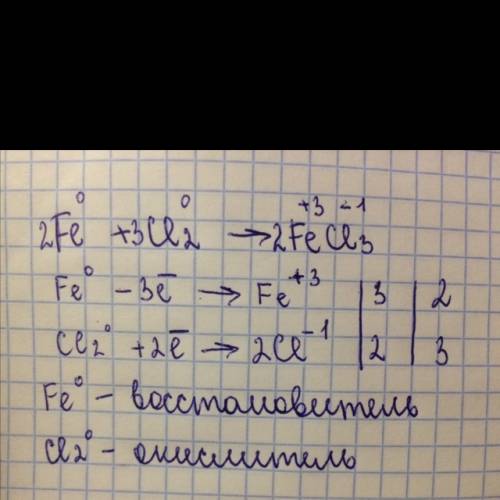 2Fe⁰ + 3Cl₂⁰ → 2Fe⁺³Cl₃⁻¹
Fe⁰ - 3ē → Fe⁺³ | 3 | 2
Cl₂⁰ + 2ē → 2Cl⁻¹ | 2 | 3
Fe⁰ - восстановитель
Cl2⁰ - окислитель